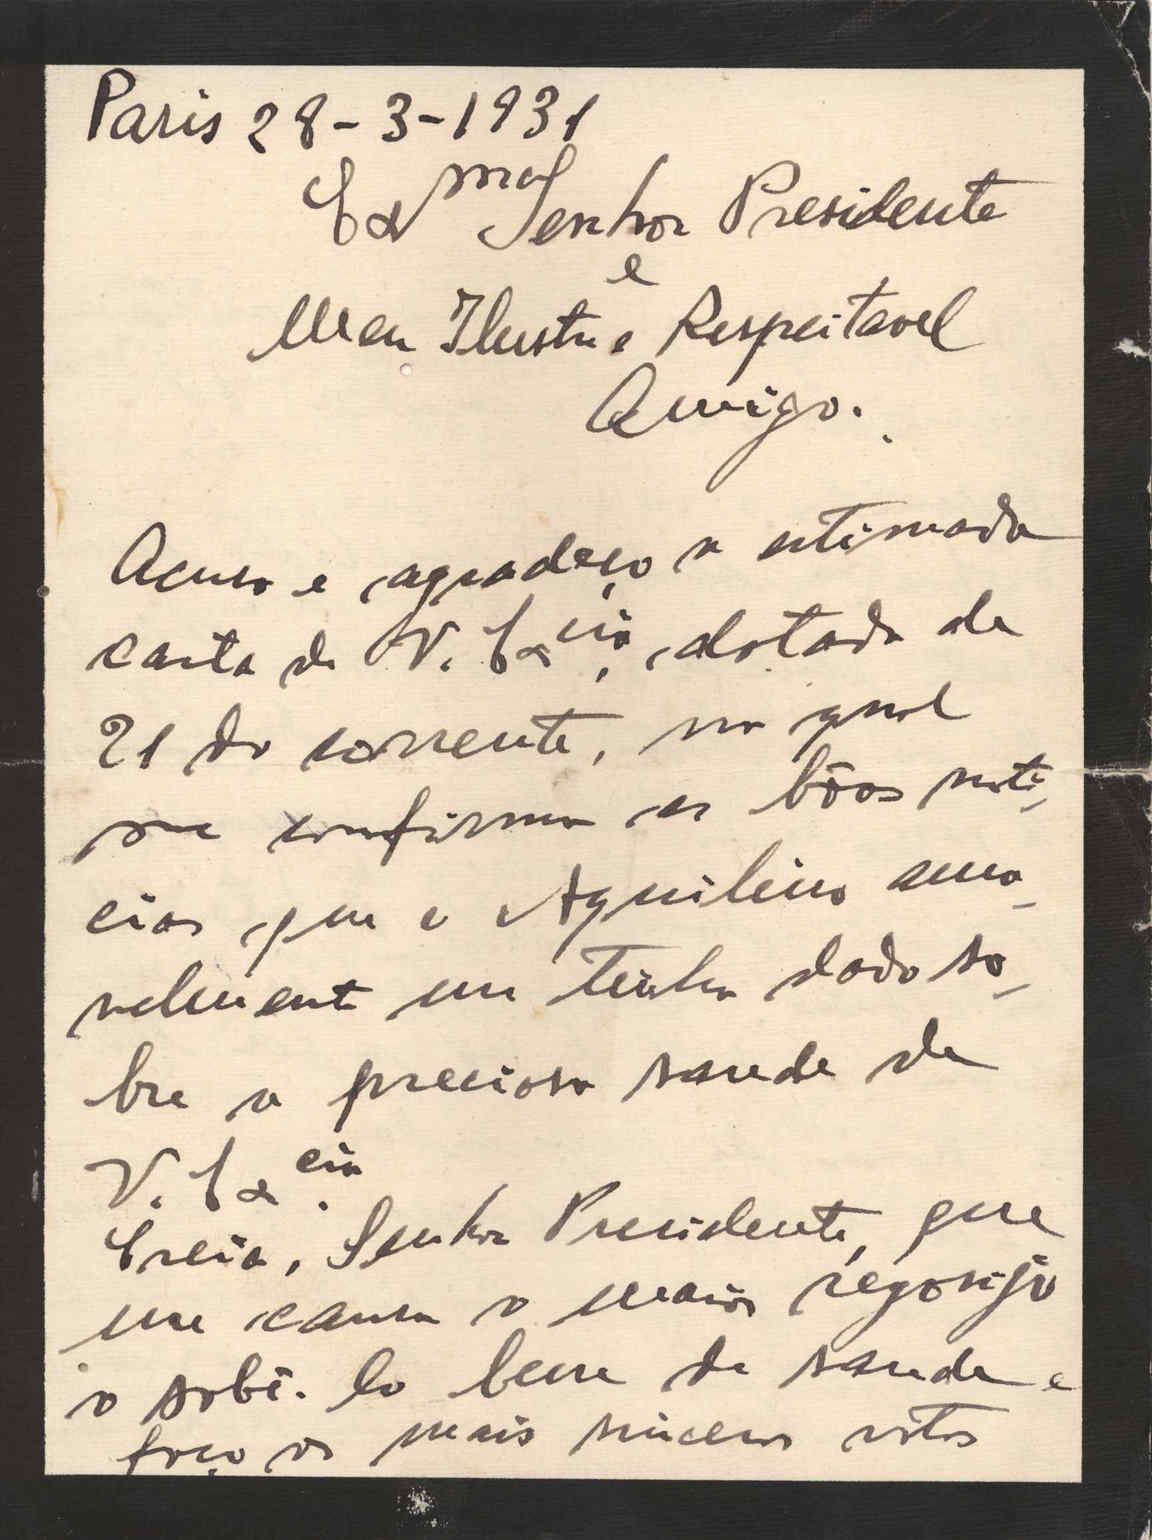 Paris 28-3-1931
Ex.mo Senhor Presidente
e
Meu Ilustre e Respeitavel
Amigo.
Acuso e agradeço a estimada
carta de V. Ex.cia, datada de
21 do corrente, na qual
me confirma as bôas noti-
cias que o Aquilino ama-
velmente me tinha dado so-
bre a preciosa saude de
V. Ex.cia
Creia, Senhor Presidente, que
me causa o maior regosijo
o sabê-lo bem de saude e
faço os mais sinceros votos